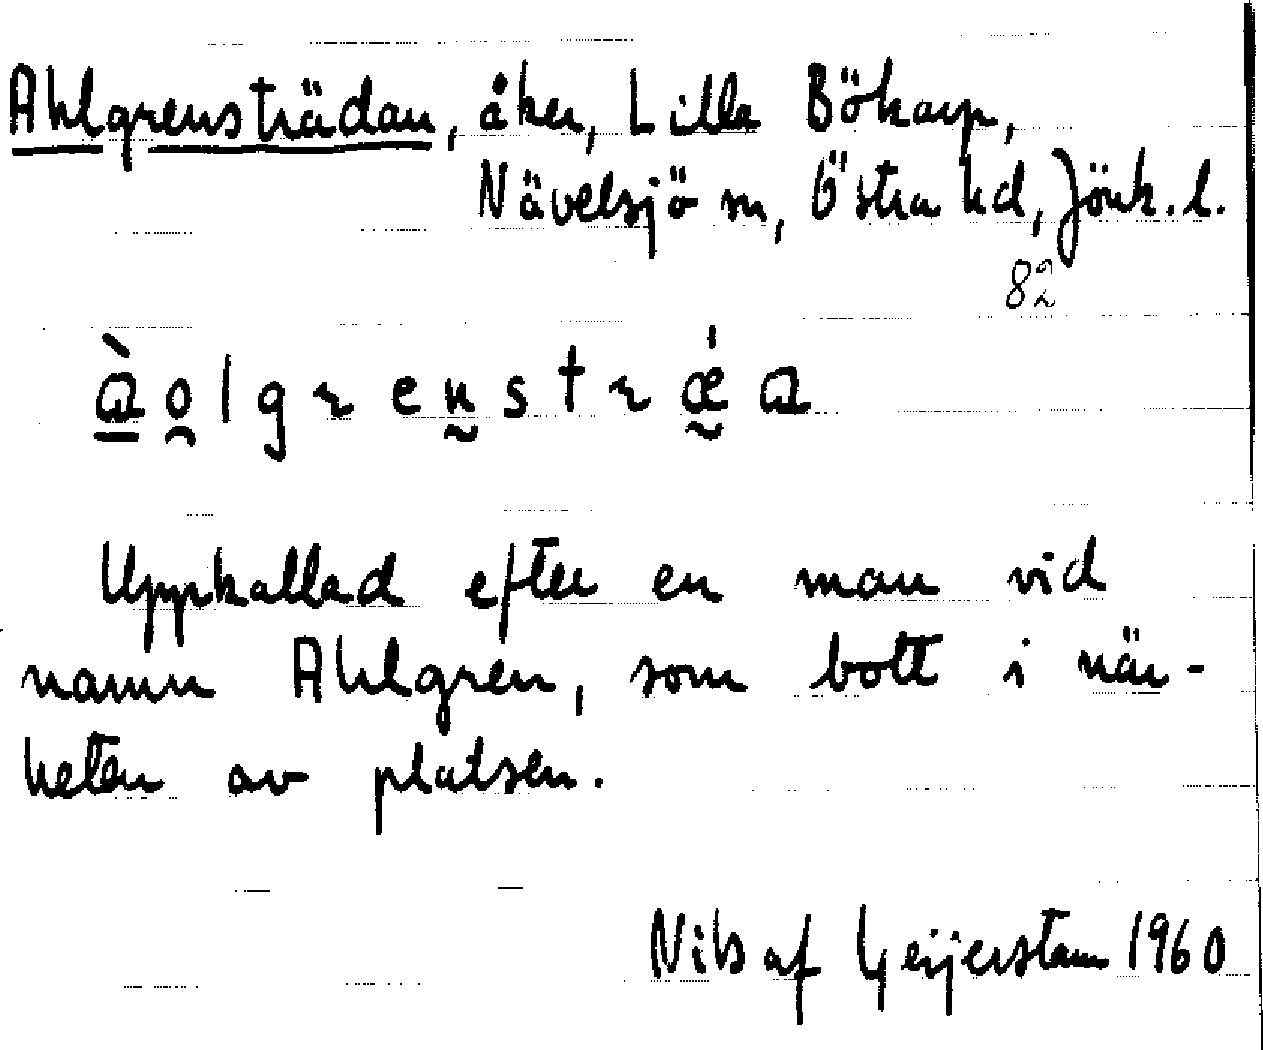 Ahlgrensträdan, åker, Lilla Bökarp,
Nävelsjö sn, Östra hd, Jönk. l.
Uppkallad efter en man vid
namn Ahlgren, som bott i när-
heten av platsen.
Nils af Geijerstam 1960